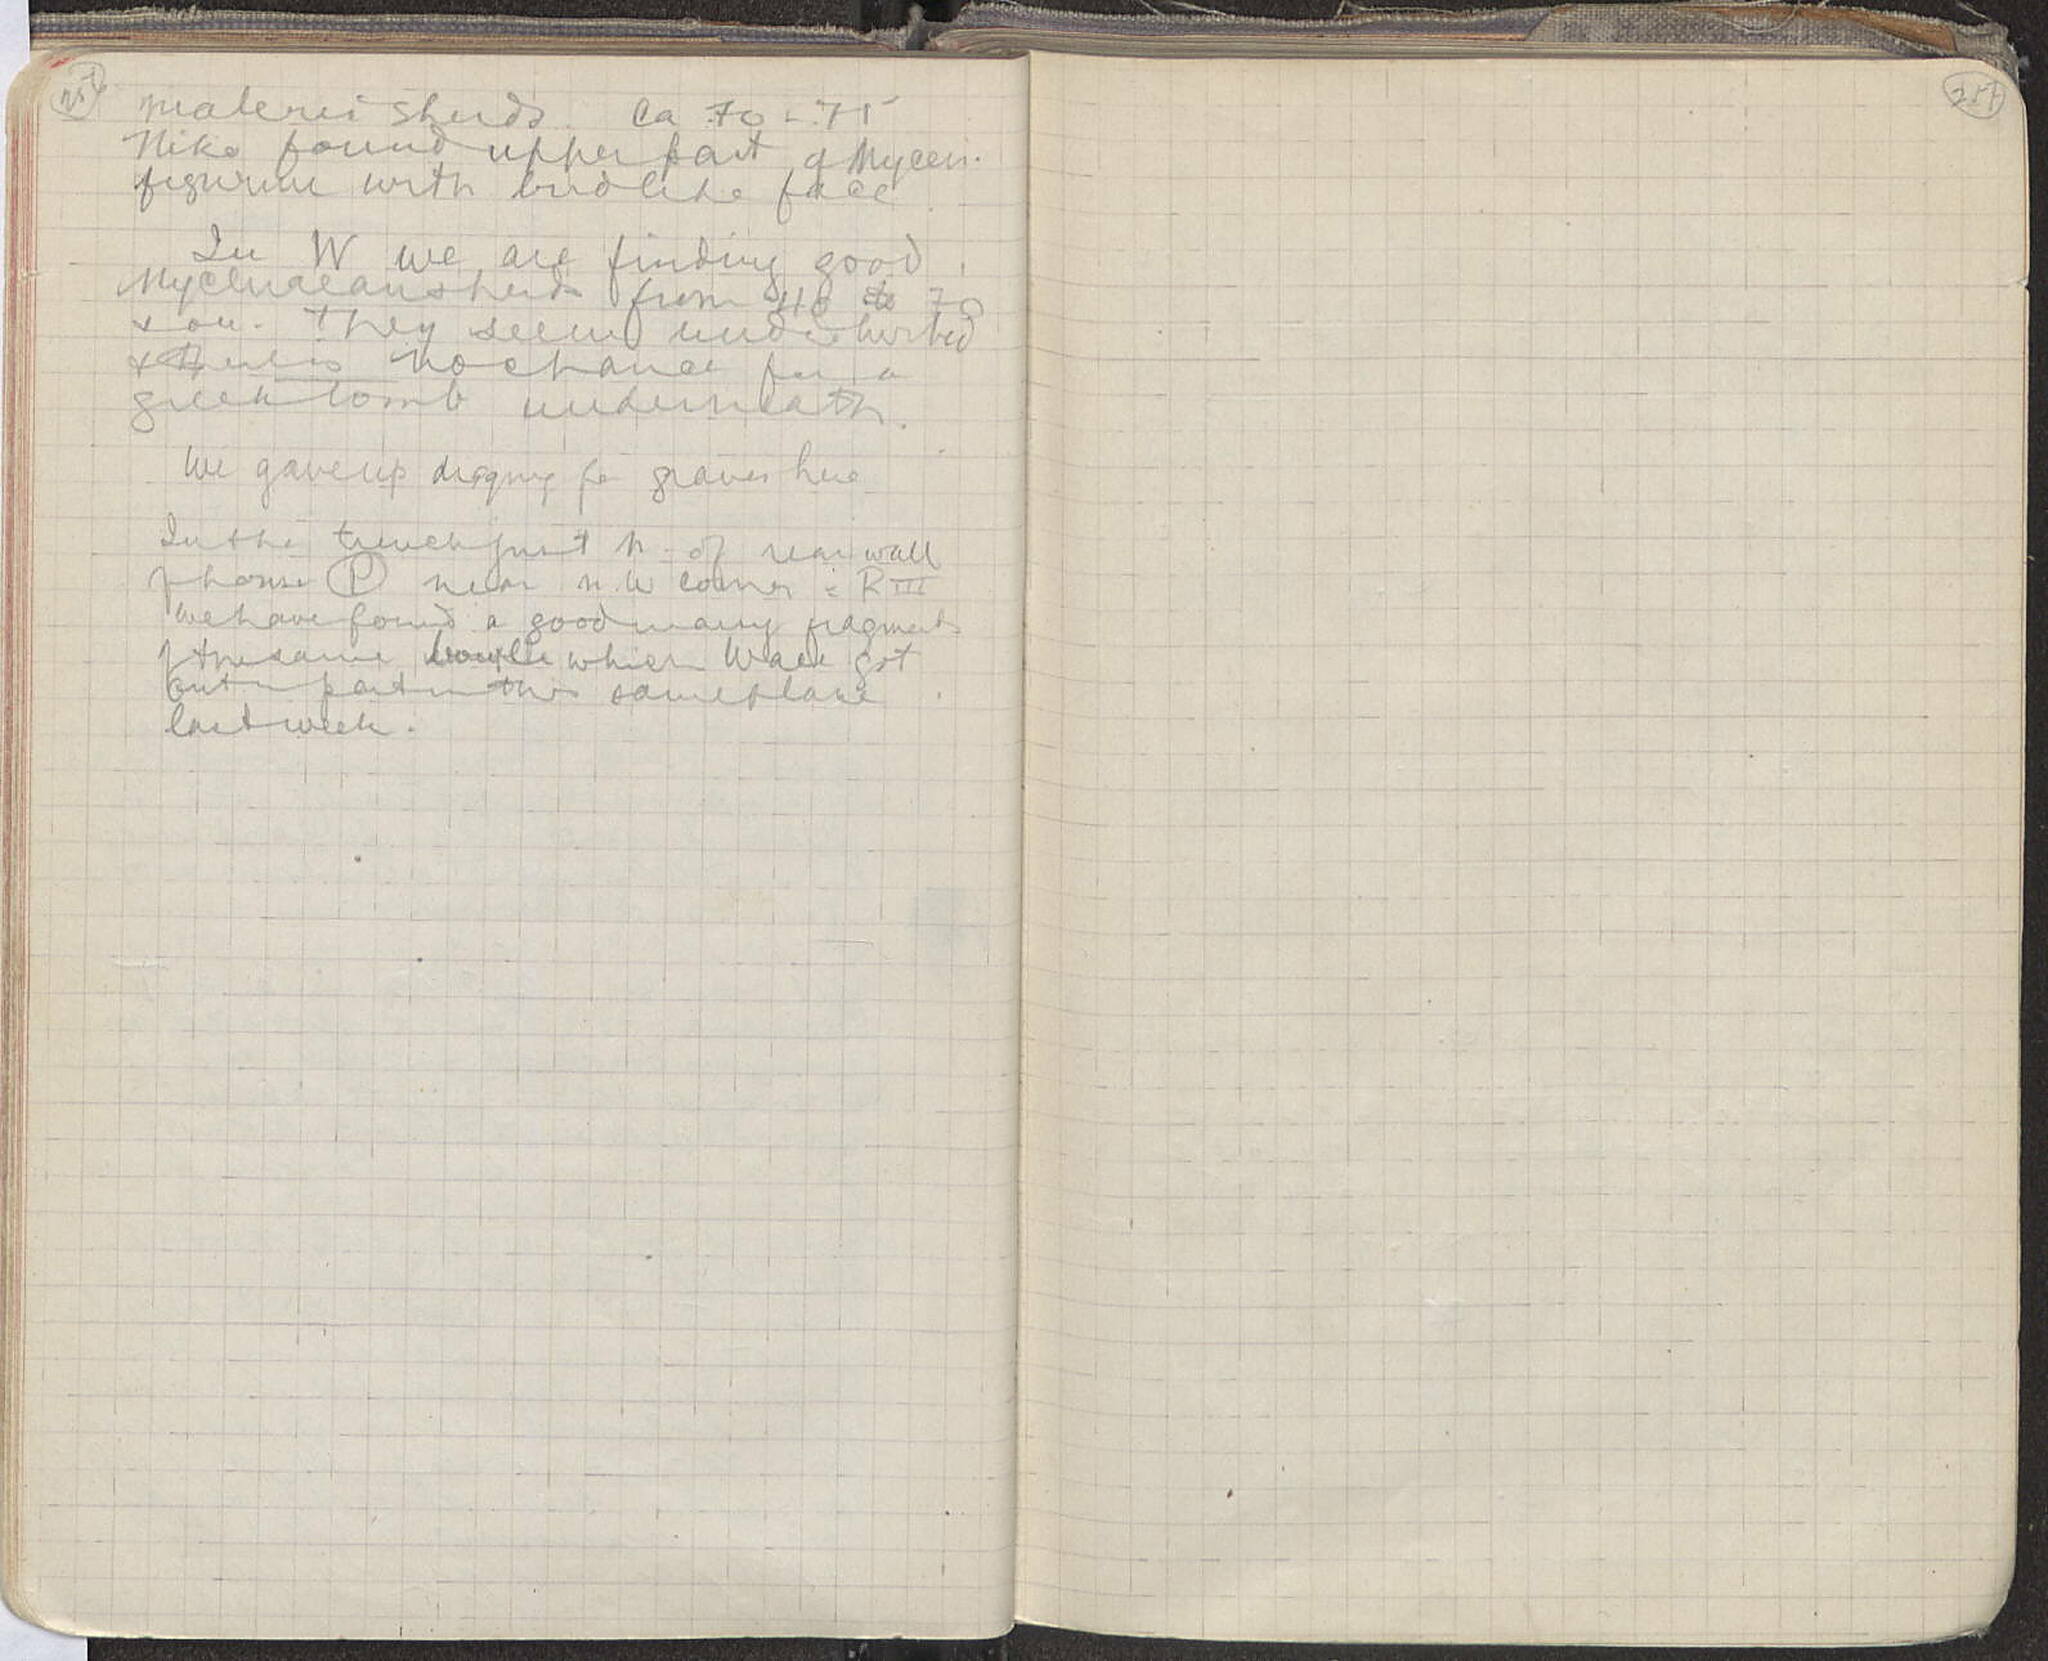 sherds. Ca .70 - .75
Niko found upper part of Mycen.
figurine with birdlike face
In W we are finding good
Mycenaean sherds from .40 to .70
& on. They seem undisturbed
& there is no chance for a
greek tomb underneath.
We gave up digging for graves here
In the trench just N. of rear wall
of house P near N.W corner = R III
we have found a good many fragments
of the same which Wace got
out in part in this same place
last week.
251